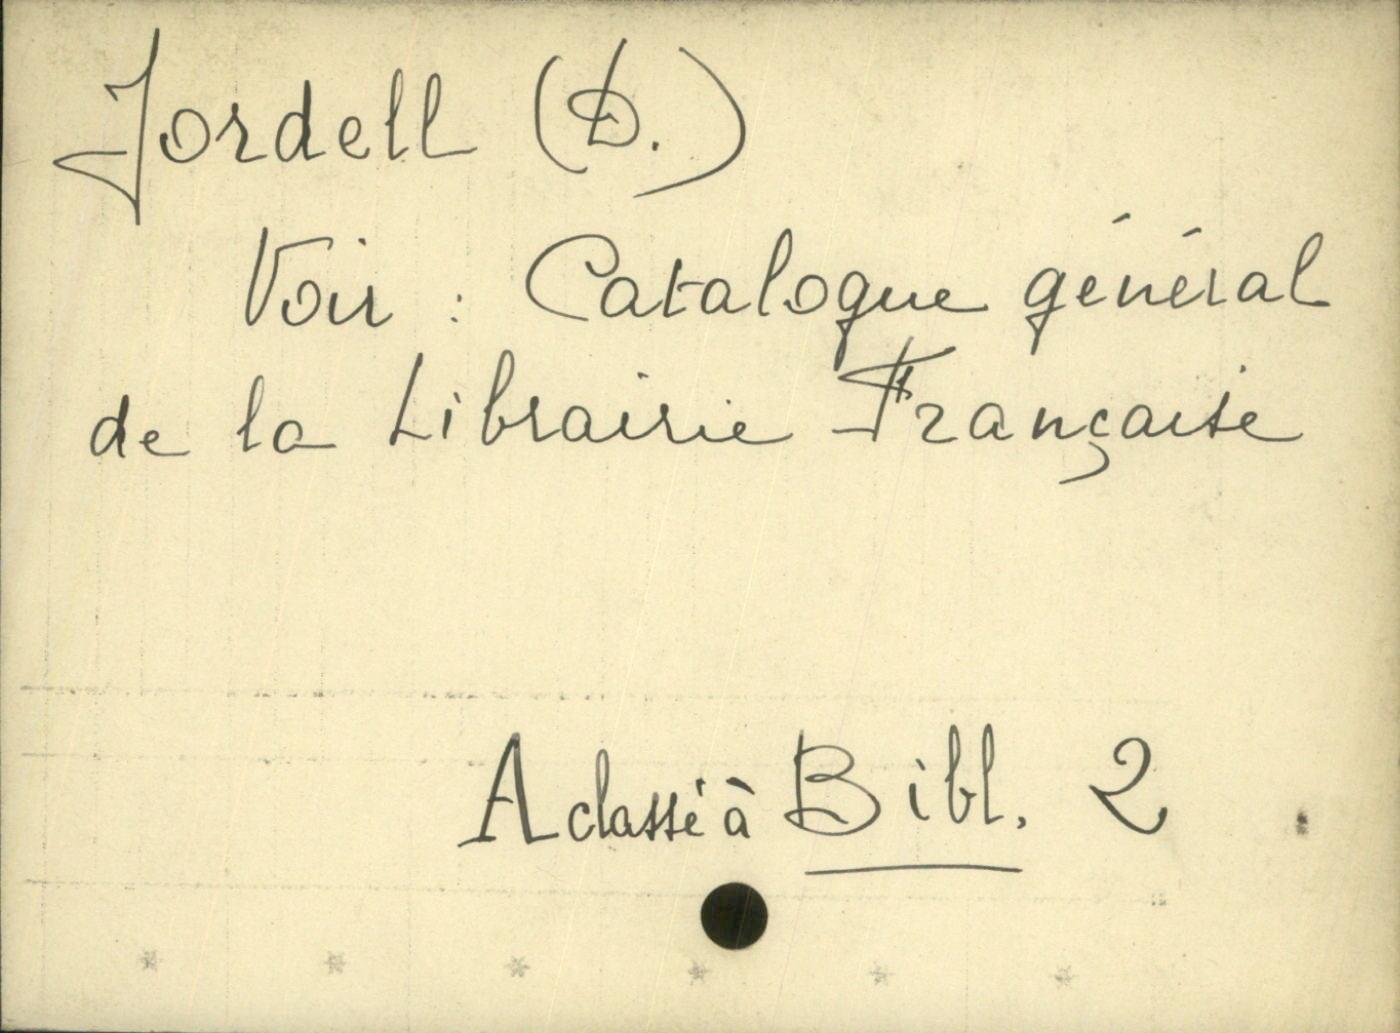 Jordell (D.)
Voir : Catalogue général
de la Librairie Française
A classé à Bibl. 2